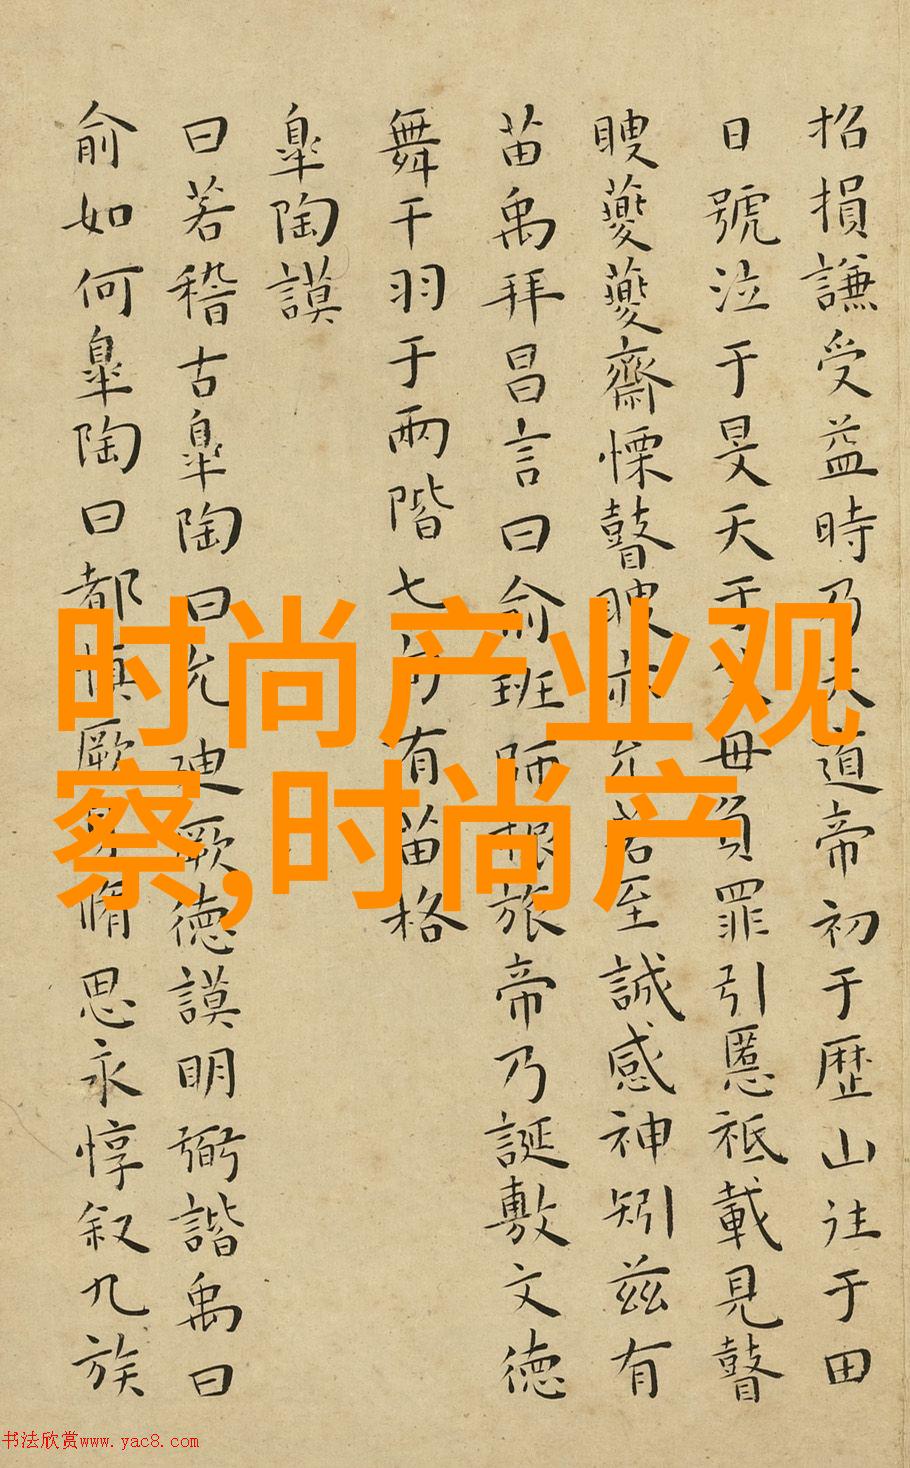 招損謙受益時乃天道帝初于歷山往于田
日號泣于旻天于父母負罪引慝祗載見瞽
瞍夔夔齋慄瞽瞍亦允若至誠感神矧茲有
苗禹拜昌言曰俞班師振旅帝乃誕敷文德
舞干羽于兩階七旬有苗格
皐陶謨
曰若稽古皐陶曰允迪厥德謨明弼諧禹曰
俞如何皐陶曰都慎厥身脩思永惇叙九族
时尚产业观
察,时尚产
书法欣赏www.yac8.com